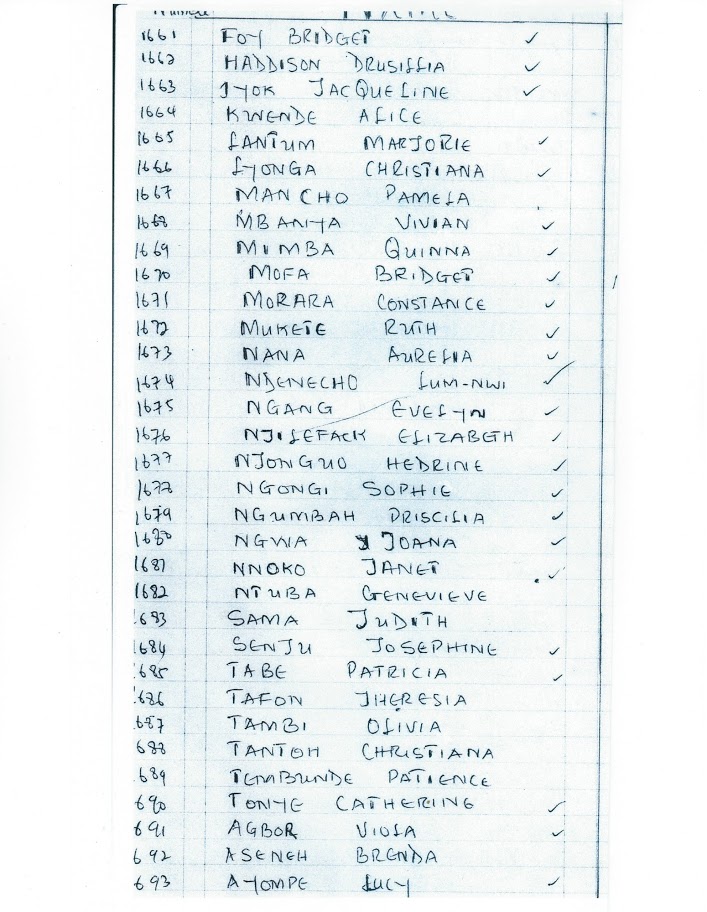 Number Name
1661 FOY BRIDGET ✓
1662 HADDISON DRUSILLIA ✓
1663 IYOK JACQUELINE ✓
1664 KWENDE ALICE
1665 LANTUM MARJORIE ✓
1666 LYONGA CHRISTIANA ✓
1667 MANCHO PAMELA
1668 MBANYA VIVIAN ✓
1669 MIMBA QUINNA ✓
1670 MOFA BRIDGET ✓
1671 MORARA CONSTANCE ✓
1672 MUKETE RUTH ✓
1673 NANA AURELIA ✓
1674 NDENECHO LUM-NWI ✓
1675 NGANG EVELYN ✓
1676 NJILEFACK ELIZABETH ✓
1677 NJONGUO HEDRINE ✓
1678 NGONGI SOPHIE ✓
1679 NGUMBAH PRISCILIA ✓
1680 NGWA JOANA ✓
1681 NNOKO JANET ✓
1682 NTUBA GENEVIEVE
1683 SAMA JUDITH
1684 SENJU JOSEPHINE ✓
1685 TABE PATRICIA ✓
1686 TAFON THERESIA
1687 TAMBI OLIVIA
688 TANTOH CHRISTIANA
689 TEMBUNDE PATIENCE
690 TONYE CATHERINE ✓
691 AGBOR VIOLA ✓
692 ASENEH BRENDA
693 AYOMPE LUCY ✓